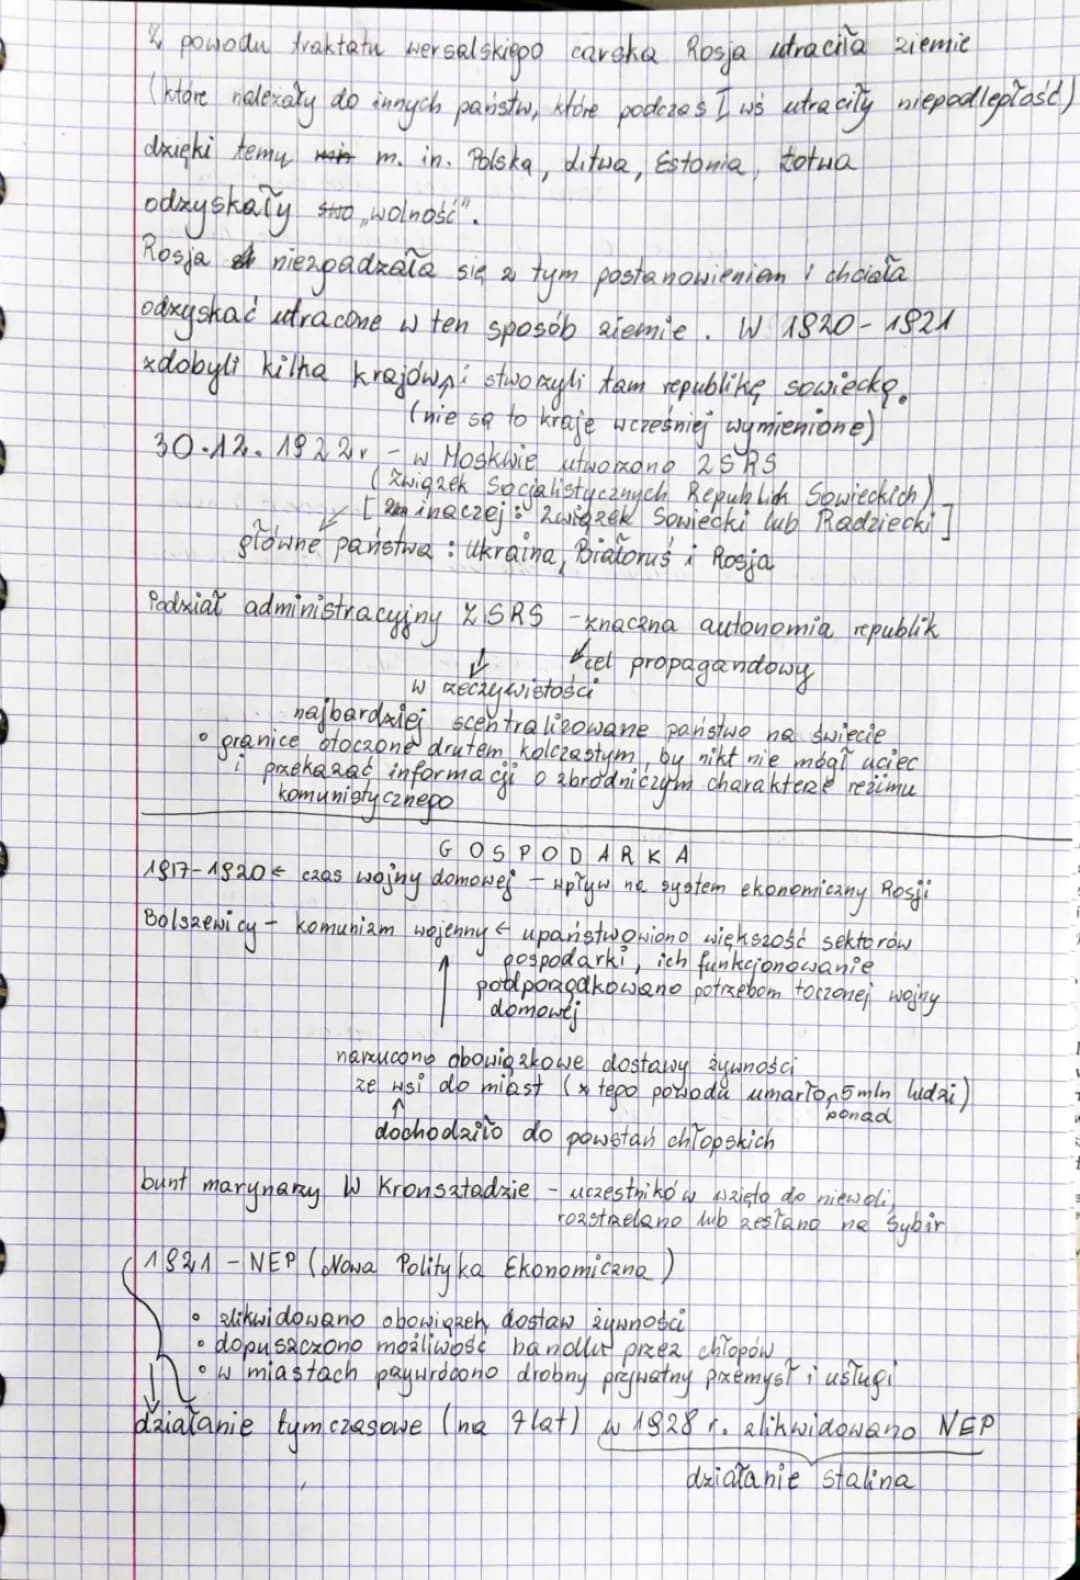 Z powodu traktatu wersalskiego carska Rosja utraciła ziemie
(które należały do innych państw, które podczas I wś utraciły niepodległość)
dzięki temu m. in. Polska, Litwa, Estonia, Łotwa
odzyskały „wolność".
Rosja niezgadzała się z tym postanowieniem i chciała
odzyskać utracone w ten sposób ziemie. W 1920-1921
zdobyli kilka krajów i stworzyli tam republikę sowiecką.
(nie są to kraje wcześniej wymienione)
30.12.1922r - w Moskwie utworzono ZSRS
(Związek Socjalistycznych Republik Sowieckich)
[inaczej: Związek Sowiecki lub Radziecki]
główne państwa: Ukraina, Białoruś i Rosja
Podział administracyjny ZSRS - znaczna autonomia republik
cel propagandowy
w rzeczywistości
najbardziej scentralizowane państwo na świecie
• granice otoczone drutem kolczastym, by nikt nie mógł uciec
i przekazać informacji o zbrodniczym charakterze reżimu
komunistycznego
GOSPODARKA
1917-1920 ← czas wojny domowej - wpływ na system ekonomiczny Rosji
Bolszewicy - komunizm wojenny ← upaństwowiono większość sektorów
gospodarki, ich funkcjonowanie
podporządkowano potrzebom toczonej wojny
domowej
narzucono obowiązkowe dostawy żywności
ze wsi do miast (z tego powodu umarło 5 mln ludzi)
ponad
dochodziło do powstań chłopskich
bunt marynarzy w Kronsztadzie - uczestników wzięto do niewoli,
rozstrzelano lub zesłano na Sybir
1921 - NEP (Nowa Polityka Ekonomiczna)
• zlikwidowano obowiązek dostaw żywności
• dopuszczono możliwość handlu przez chłopów
• w miastach przywrócono drobny prywatny przemysł i usługi
działanie tymczasowe (na 7 lat) w 1928 r. zlikwidowano NEP
działanie Stalina